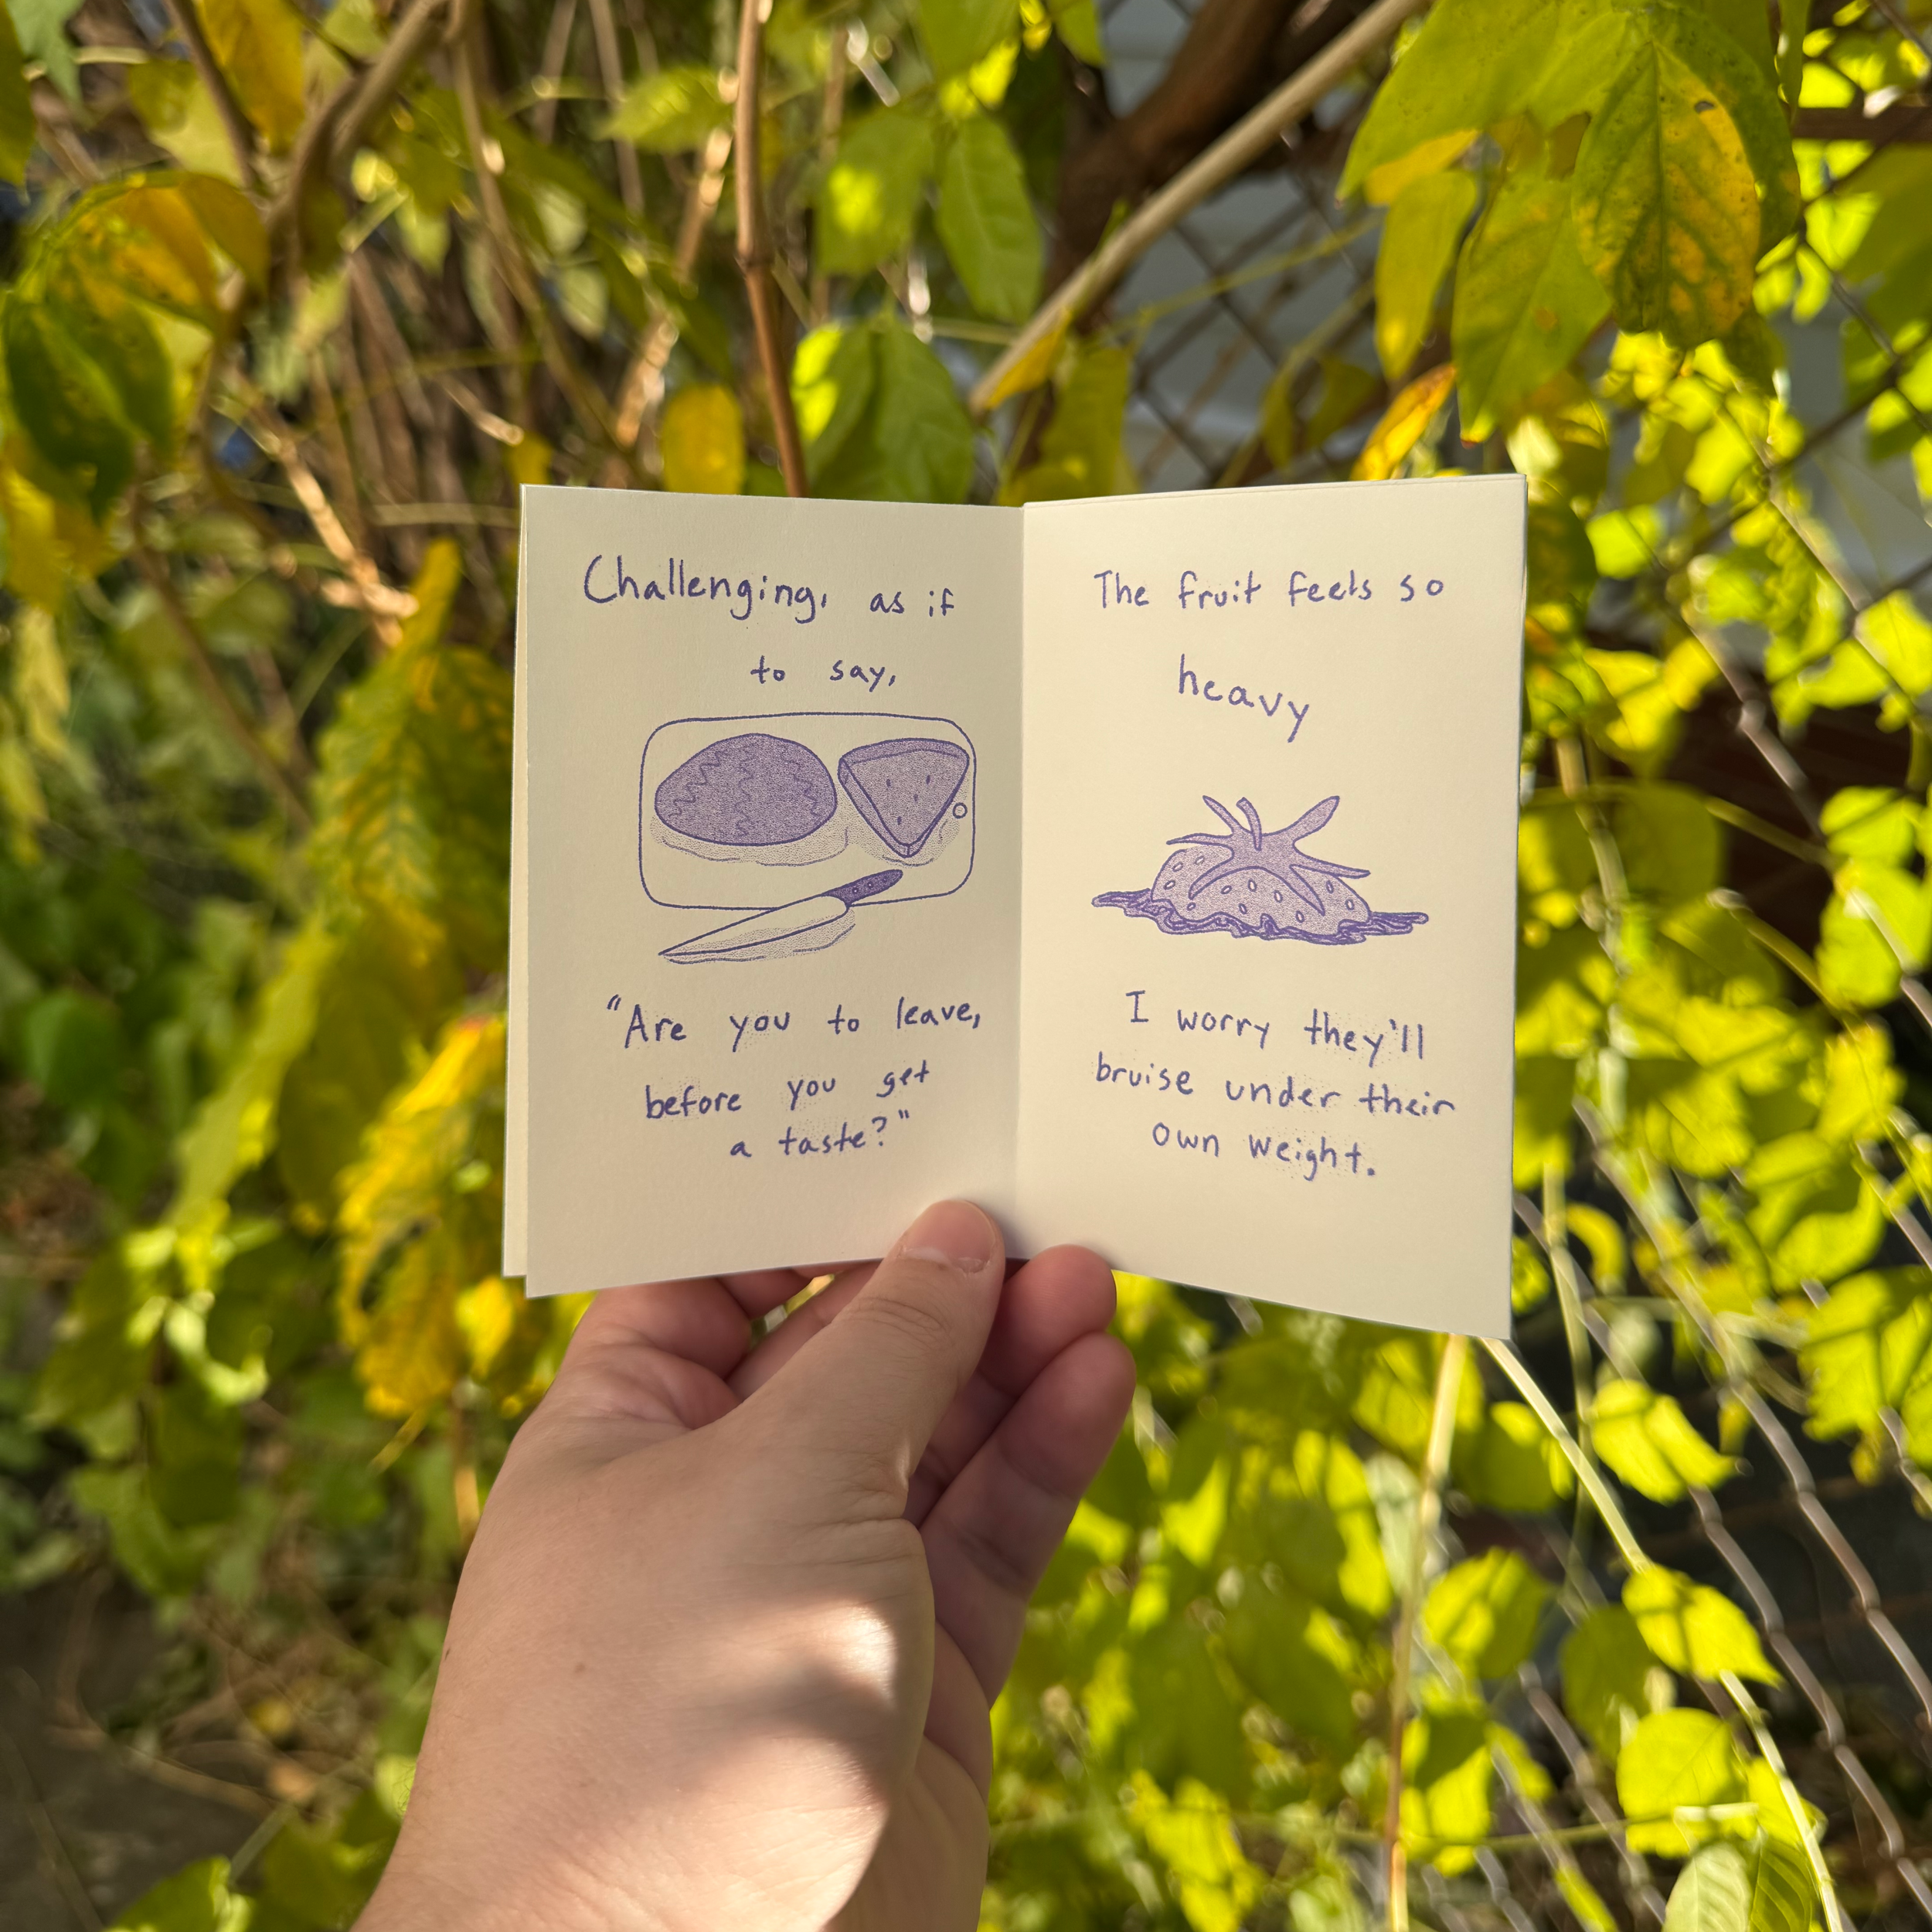 Challenging, as if
to say,
"Are you to leave,
before you get
a taste?"
The fruit feels so
heavy
I worry they'll
bruise under their
own weight.